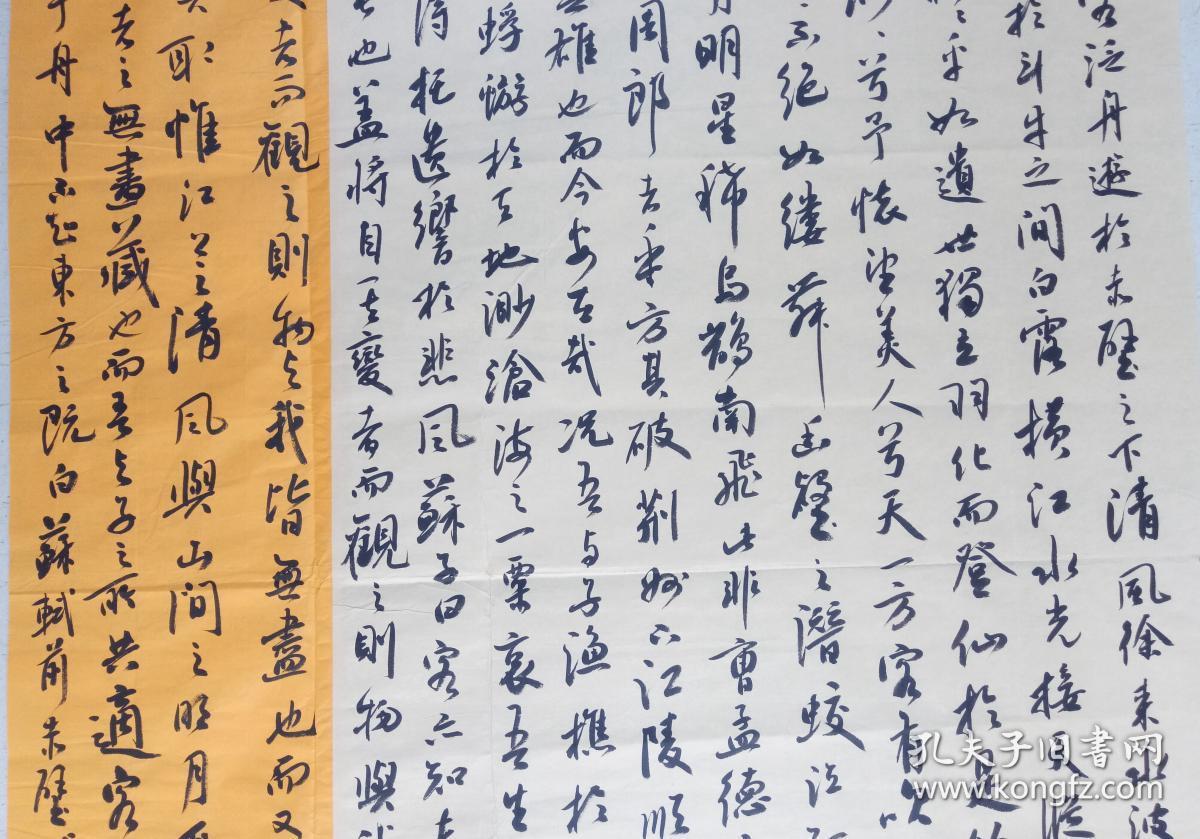 客泛舟遊於赤壁之下清風徐來水波
於斗牛之間白露橫江水光接天縱
乎如遺世獨立羽化而登仙於是
渺〻兮予懷望美人兮天一方客有吹
不絕如縷舞幽壑之潛蛟泣
月明星稀烏鵲南飛此非曹孟德
周郎者乎方其破荊州下江陵順
雄也而今安在哉況吾與子漁樵於
蜉蝣於天地渺滄海之一粟哀吾生
得托遺響於悲風蘇子曰客亦知夫
也蓋將自其變者而觀之則物與
者而觀之則物與我皆無盡也而又
取惟江上之清風與山間之明月
者之無盡藏也而吾與子之所共適客
乎舟中不知東方之既白蘇軾前赤壁
孔夫子旧书网
www.kongfz.com